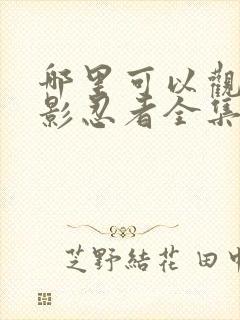 哪里可以觀
影忍者全集
芝野結花 田中